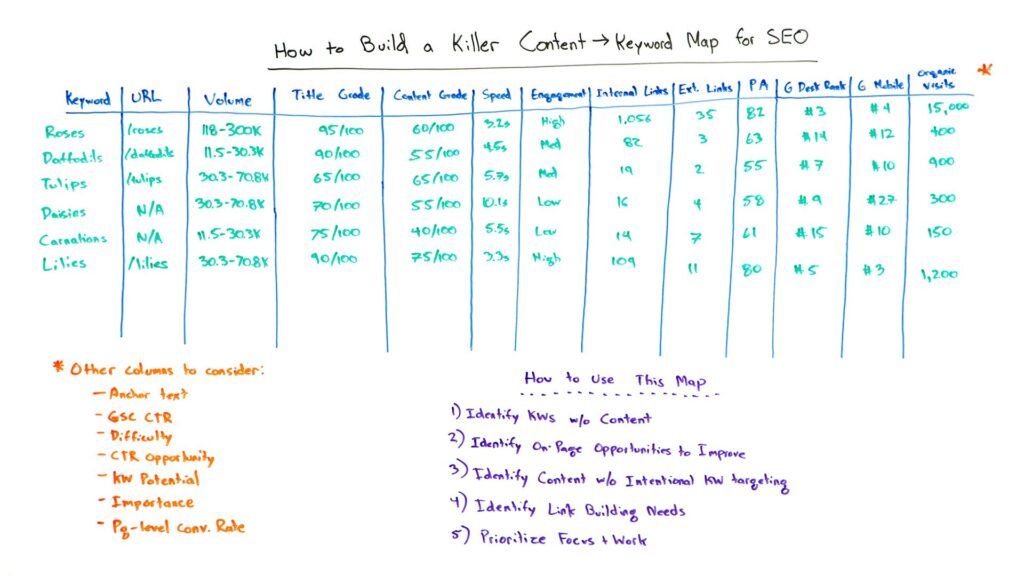 How to Build a Killer Content → Keyword Map for SEO
Keyword URL Volume Title Grade Content Grade Speed Engagement Internal Links Ext. Links PA G Desk Rank G Mobile Organic Visits *
Roses /roses 118-300K 95/100 60/100 3.2s High 1,056 35 82 #3 #4 15,000
Daffodils /daffodils 11.5-30.3K 90/100 55/100 4.5s Med 82 3 63 #14 #12 400
Tulips /tulips 30.3-70.8K 65/100 65/100 5.7s Med 19 2 55 #7 #10 900
Daisies N/A 30.3-70.8K 70/100 55/100 10.1s Low 16 4 58 #9 #27 300
Carnations N/A 11.5-30.3K 75/100 40/100 5.5s Low 14 7 61 #15 #10 150
Lilies /lilies 30.3-70.8K 90/100 75/100 3.3s High 109 11 80 #5 #3 1,200
* Other columns to consider:
- Anchor text
- GSC CTR
- Difficulty
- CTR Opportunity
- KW Potential
- Importance
- Pg-level Conv. Rate
How to Use This Map
1) Identify KWs w/o Content
2) Identify On-Page Opportunities to Improve
3) Identify Content w/o Intentional KW targeting
4) Identify Link Building Needs
5) Prioritize Focus + Work